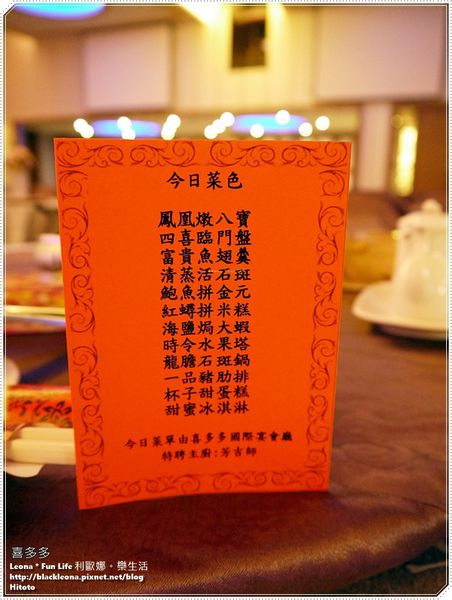 今日菜色
鳳凰燉八寶
四喜臨門盤
富貴魚翅羹
清蒸活石斑
鮑魚拼金元
紅蟳拼米糕
海鹽焗大蝦
時令水果塔
龍膽石斑鍋
一品豬肋排
杯子甜蛋糕
甜蜜冰淇淋
今日菜單由喜多多國際宴會廳
特聘主廚:芳吉師
喜多多
Leona * Fun Life 利歐娜。樂生活
http://blackleona.pixnet.net/blog
Hitoto